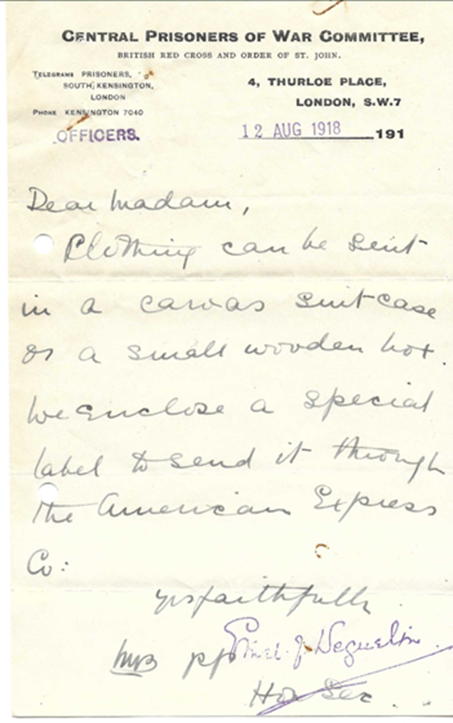 CENTRAL PRISONERS OF WAR COMMITTEE,
BRITISH RED CROSS AND ORDER OF ST. JOHN.
TELEGRAMS PRISONERS,
SOUTH KENSINGTON,
LONDON
PHONE KENSINGTON 7040
OFFICERS.
4, THURLOE PLACE,
LONDON, S.W.7
12 AUG 1918 191
Dear Madam,
Clothing can be sent
in a canvas suitcase
or a small wooden box.
We enclose a special
label to send it through
the American Express
Co:
yrs faithfully
pp J. Heguelin
Hon Sec.